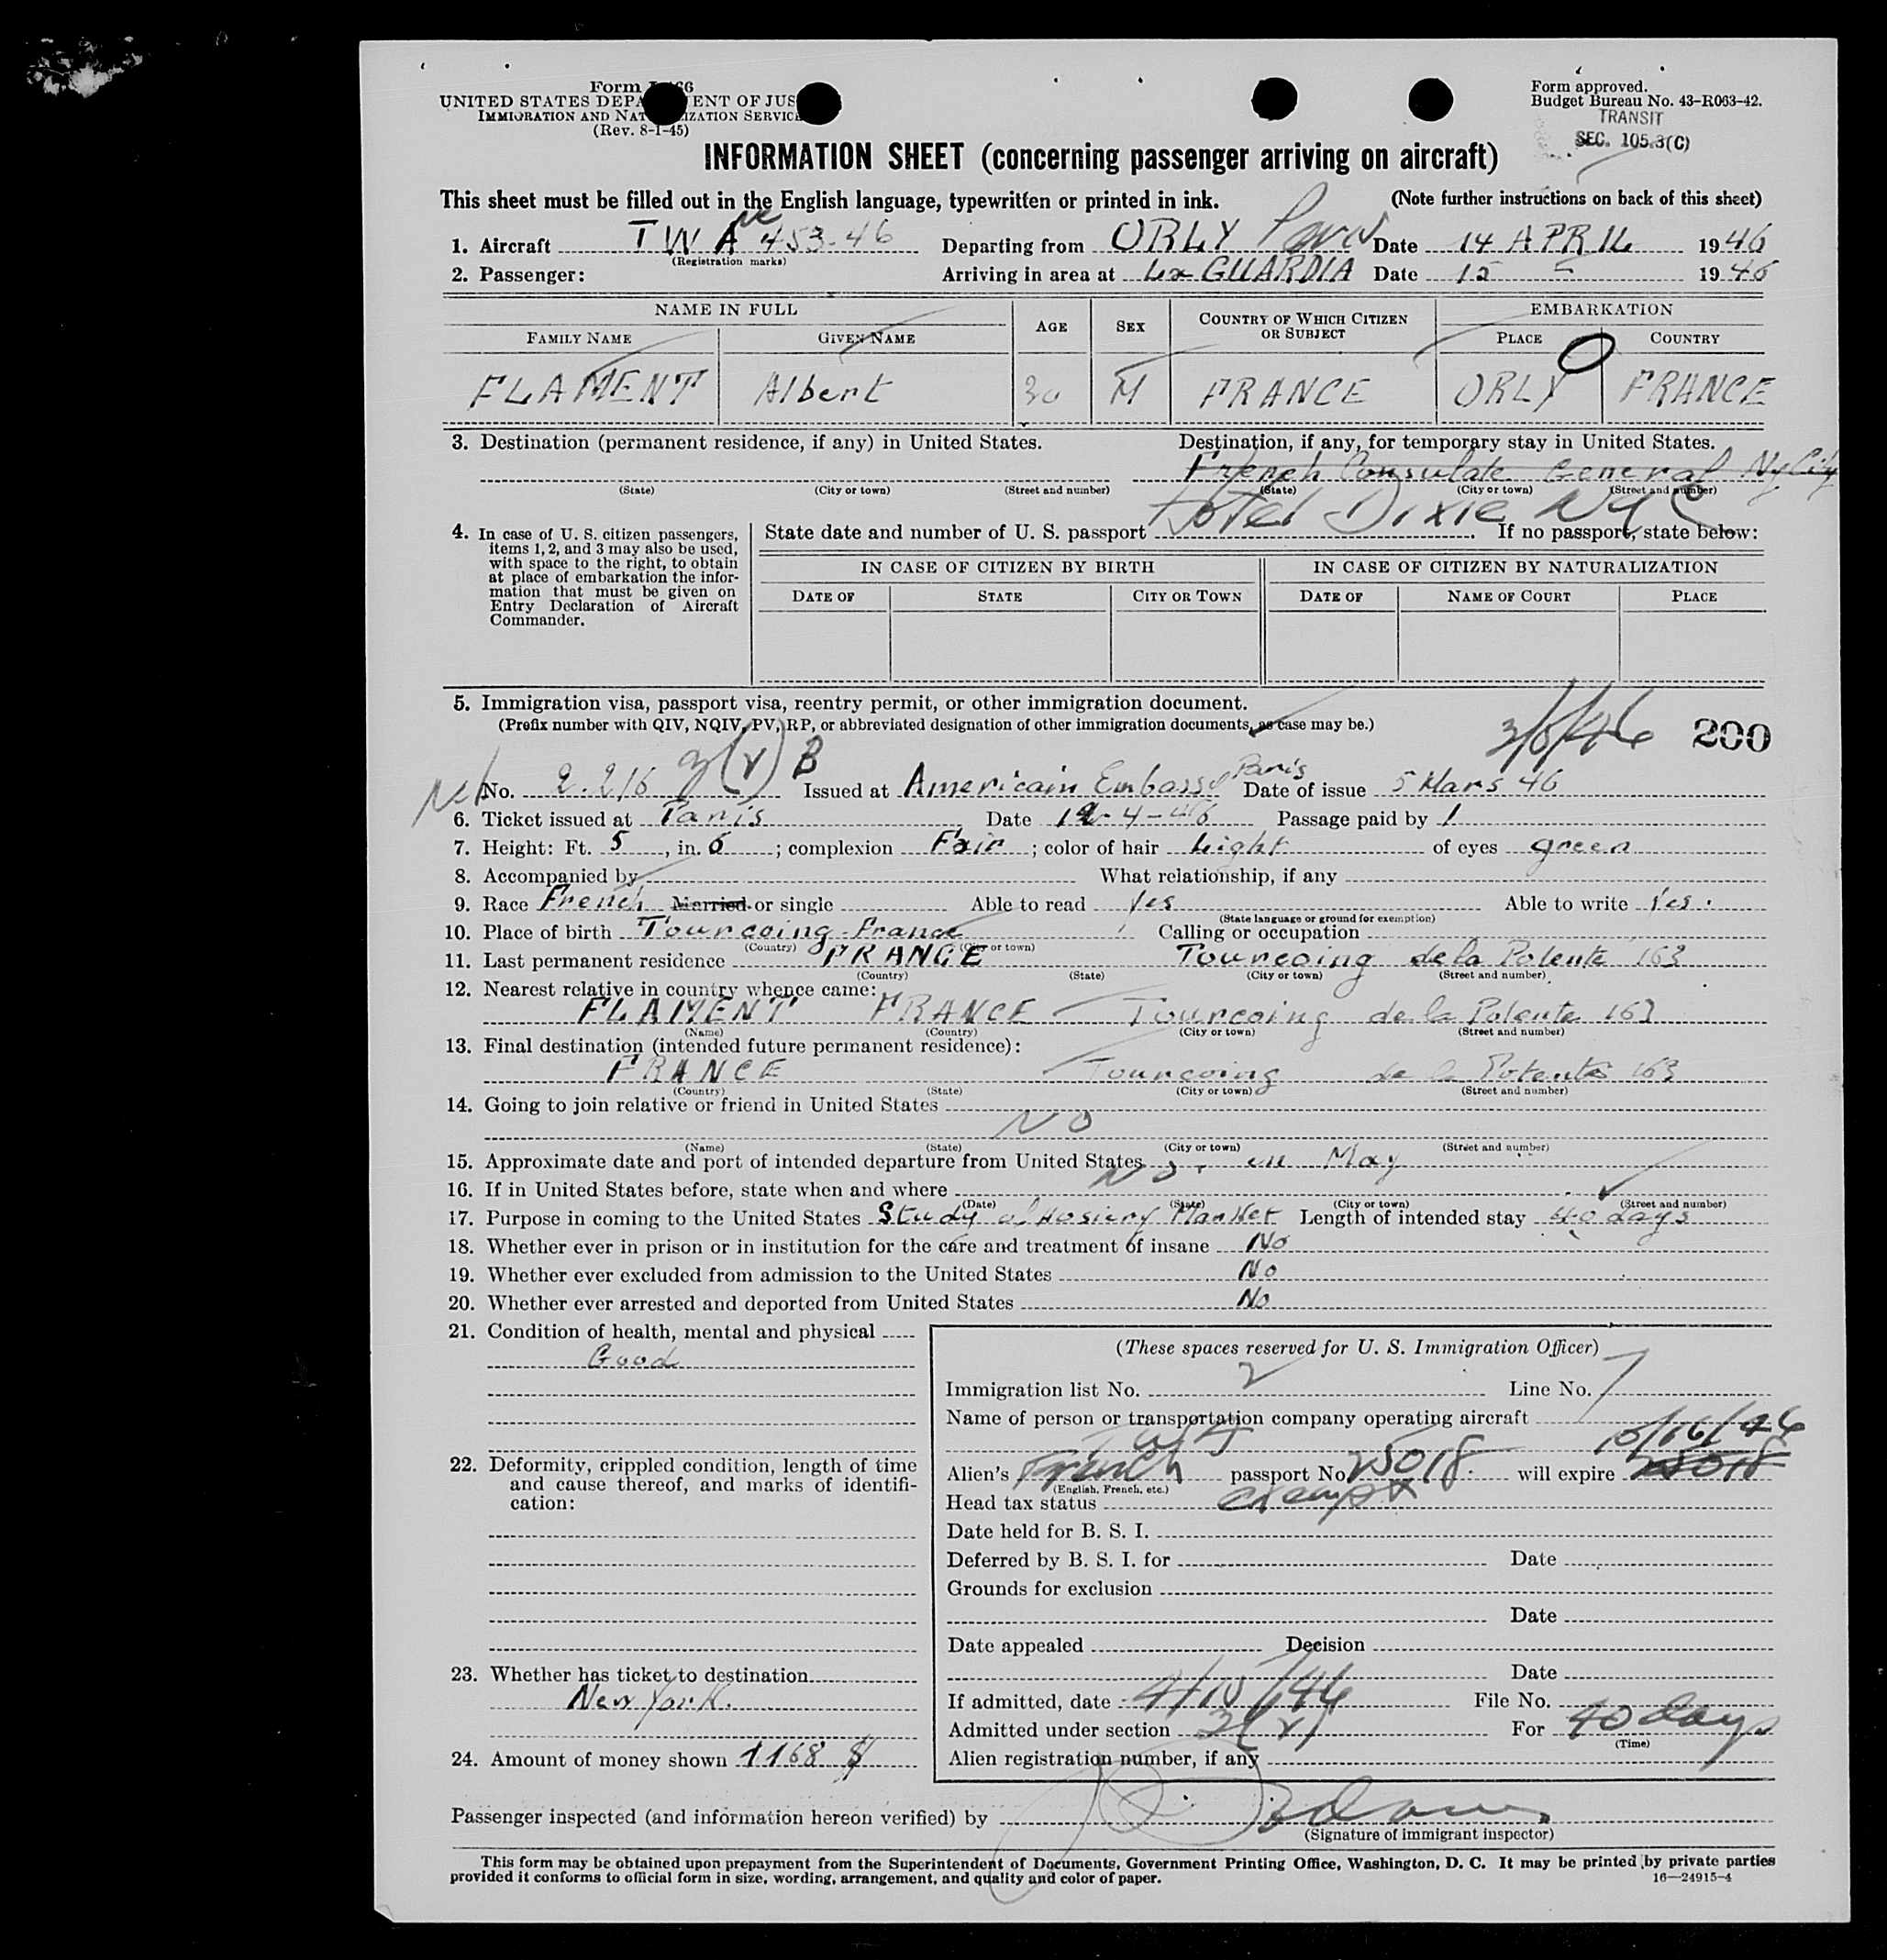 Form I-466
UNITED STATES DEPARTMENT OF JUSTICE
IMMIGRATION AND NATURALIZATION SERVICE
(Rev. 8-1-45)
Form approved.
Budget Bureau No. 43-R063-42.
TRANSIT
SEC. 105.3(C)
INFORMATION SHEET (concerning passenger arriving on aircraft)
This sheet must be filled out in the English language, typewritten or printed in ink. (Note further instructions on back of this sheet)
1. Aircraft TWA NC 453-46 Departing from ORLY Paris Date 14 APRIL 1946
(Registration marks)
2. Passenger: Arriving in area at La GUARDIA Date 15 1946
NAME IN FULL AGE SEX COUNTRY OF WHICH CITIZEN OR SUBJECT EMBARKATION
FAMILY NAME GIVEN NAME PLACE COUNTRY
FLAMENT Albert 30 M FRANCE ORLY FRANCE
3. Destination (permanent residence, if any) in United States. Destination, if any, for temporary stay in United States.
French Consulate General Ny City
(State) (City or town) (Street and number) (State) (City or town) (Street and number)
Hotel Dixie NYC
4. In case of U. S. citizen passengers, items 1, 2, and 3 may also be used, with space to the right, to obtain at place of embarkation the information that must be given on Entry Declaration of Aircraft Commander.
State date and number of U. S. passport If no passport, state below:
IN CASE OF CITIZEN BY BIRTH IN CASE OF CITIZEN BY NATURALIZATION
DATE OF STATE CITY OR TOWN DATE OF NAME OF COURT PLACE
5. Immigration visa, passport visa, reentry permit, or other immigration document.
(Prefix number with QIV, NQIV, PV, RP, or abbreviated designation of other immigration documents, as case may be.)
3/5/46 200
3(2) B
No. 2.216 Issued at Americain Embassy Paris Date of issue 5 Mars 46
6. Ticket issued at Paris Date 12-4-46 Passage paid by 1
7. Height: Ft. 5, in. 6; complexion Fair; color of hair Light of eyes green
8. Accompanied by What relationship, if any
9. Race French Married or single Able to read Yes Able to write Yes.
(State language or ground for exemption)
10. Place of birth Tourcoing France Calling or occupation
(Country) (City or town)
11. Last permanent residence FRANCE Tourcoing de la Potente 163
(Country) (State) (City or town) (Street and number)
12. Nearest relative in country whence came:
FLAMENT FRANCE Tourcoing de la Potente 163
(Name) (Country) (City or town) (Street and number)
13. Final destination (intended future permanent residence):
FRANCE Tourcoing de la Potente 163
(Country) (State) (City or town) (Street and number)
14. Going to join relative or friend in United States
NO
(Name) (State) (City or town) (Street and number)
15. Approximate date and port of intended departure from United States in May
16. If in United States before, state when and where NO.
(Date) (State) (City or town) (Street and number)
17. Purpose in coming to the United States Study of Hosiery Market Length of intended stay 40 days
18. Whether ever in prison or in institution for the care and treatment of insane No
19. Whether ever excluded from admission to the United States No
20. Whether ever arrested and deported from United States No
21. Condition of health, mental and physical
Good
22. Deformity, crippled condition, length of time and cause thereof, and marks of identification:
23. Whether has ticket to destination
New York.
24. Amount of money shown 1168 $
(These spaces reserved for U. S. Immigration Officer)
Immigration list No. 2 Line No. 7
Name of person or transportation company operating aircraft
TWA 10/16/46
Alien's French passport No. 25018 will expire 25018
(English, French, etc.)
Head tax status exempt
Date held for B. S. I.
Deferred by B. S. I. for Date
Grounds for exclusion
Date
Date appealed Decision
Date
If admitted, date 4/15/46 File No.
Admitted under section 3(2) For 40 days
(Time)
Alien registration number, if any
Passenger inspected (and information hereon verified) by
(Signature of immigrant inspector)
This form may be obtained upon prepayment from the Superintendent of Documents, Government Printing Office, Washington, D. C. It may be printed by private parties
provided it conforms to official form in size, wording, arrangement, and quality and color of paper.
16—24915-4